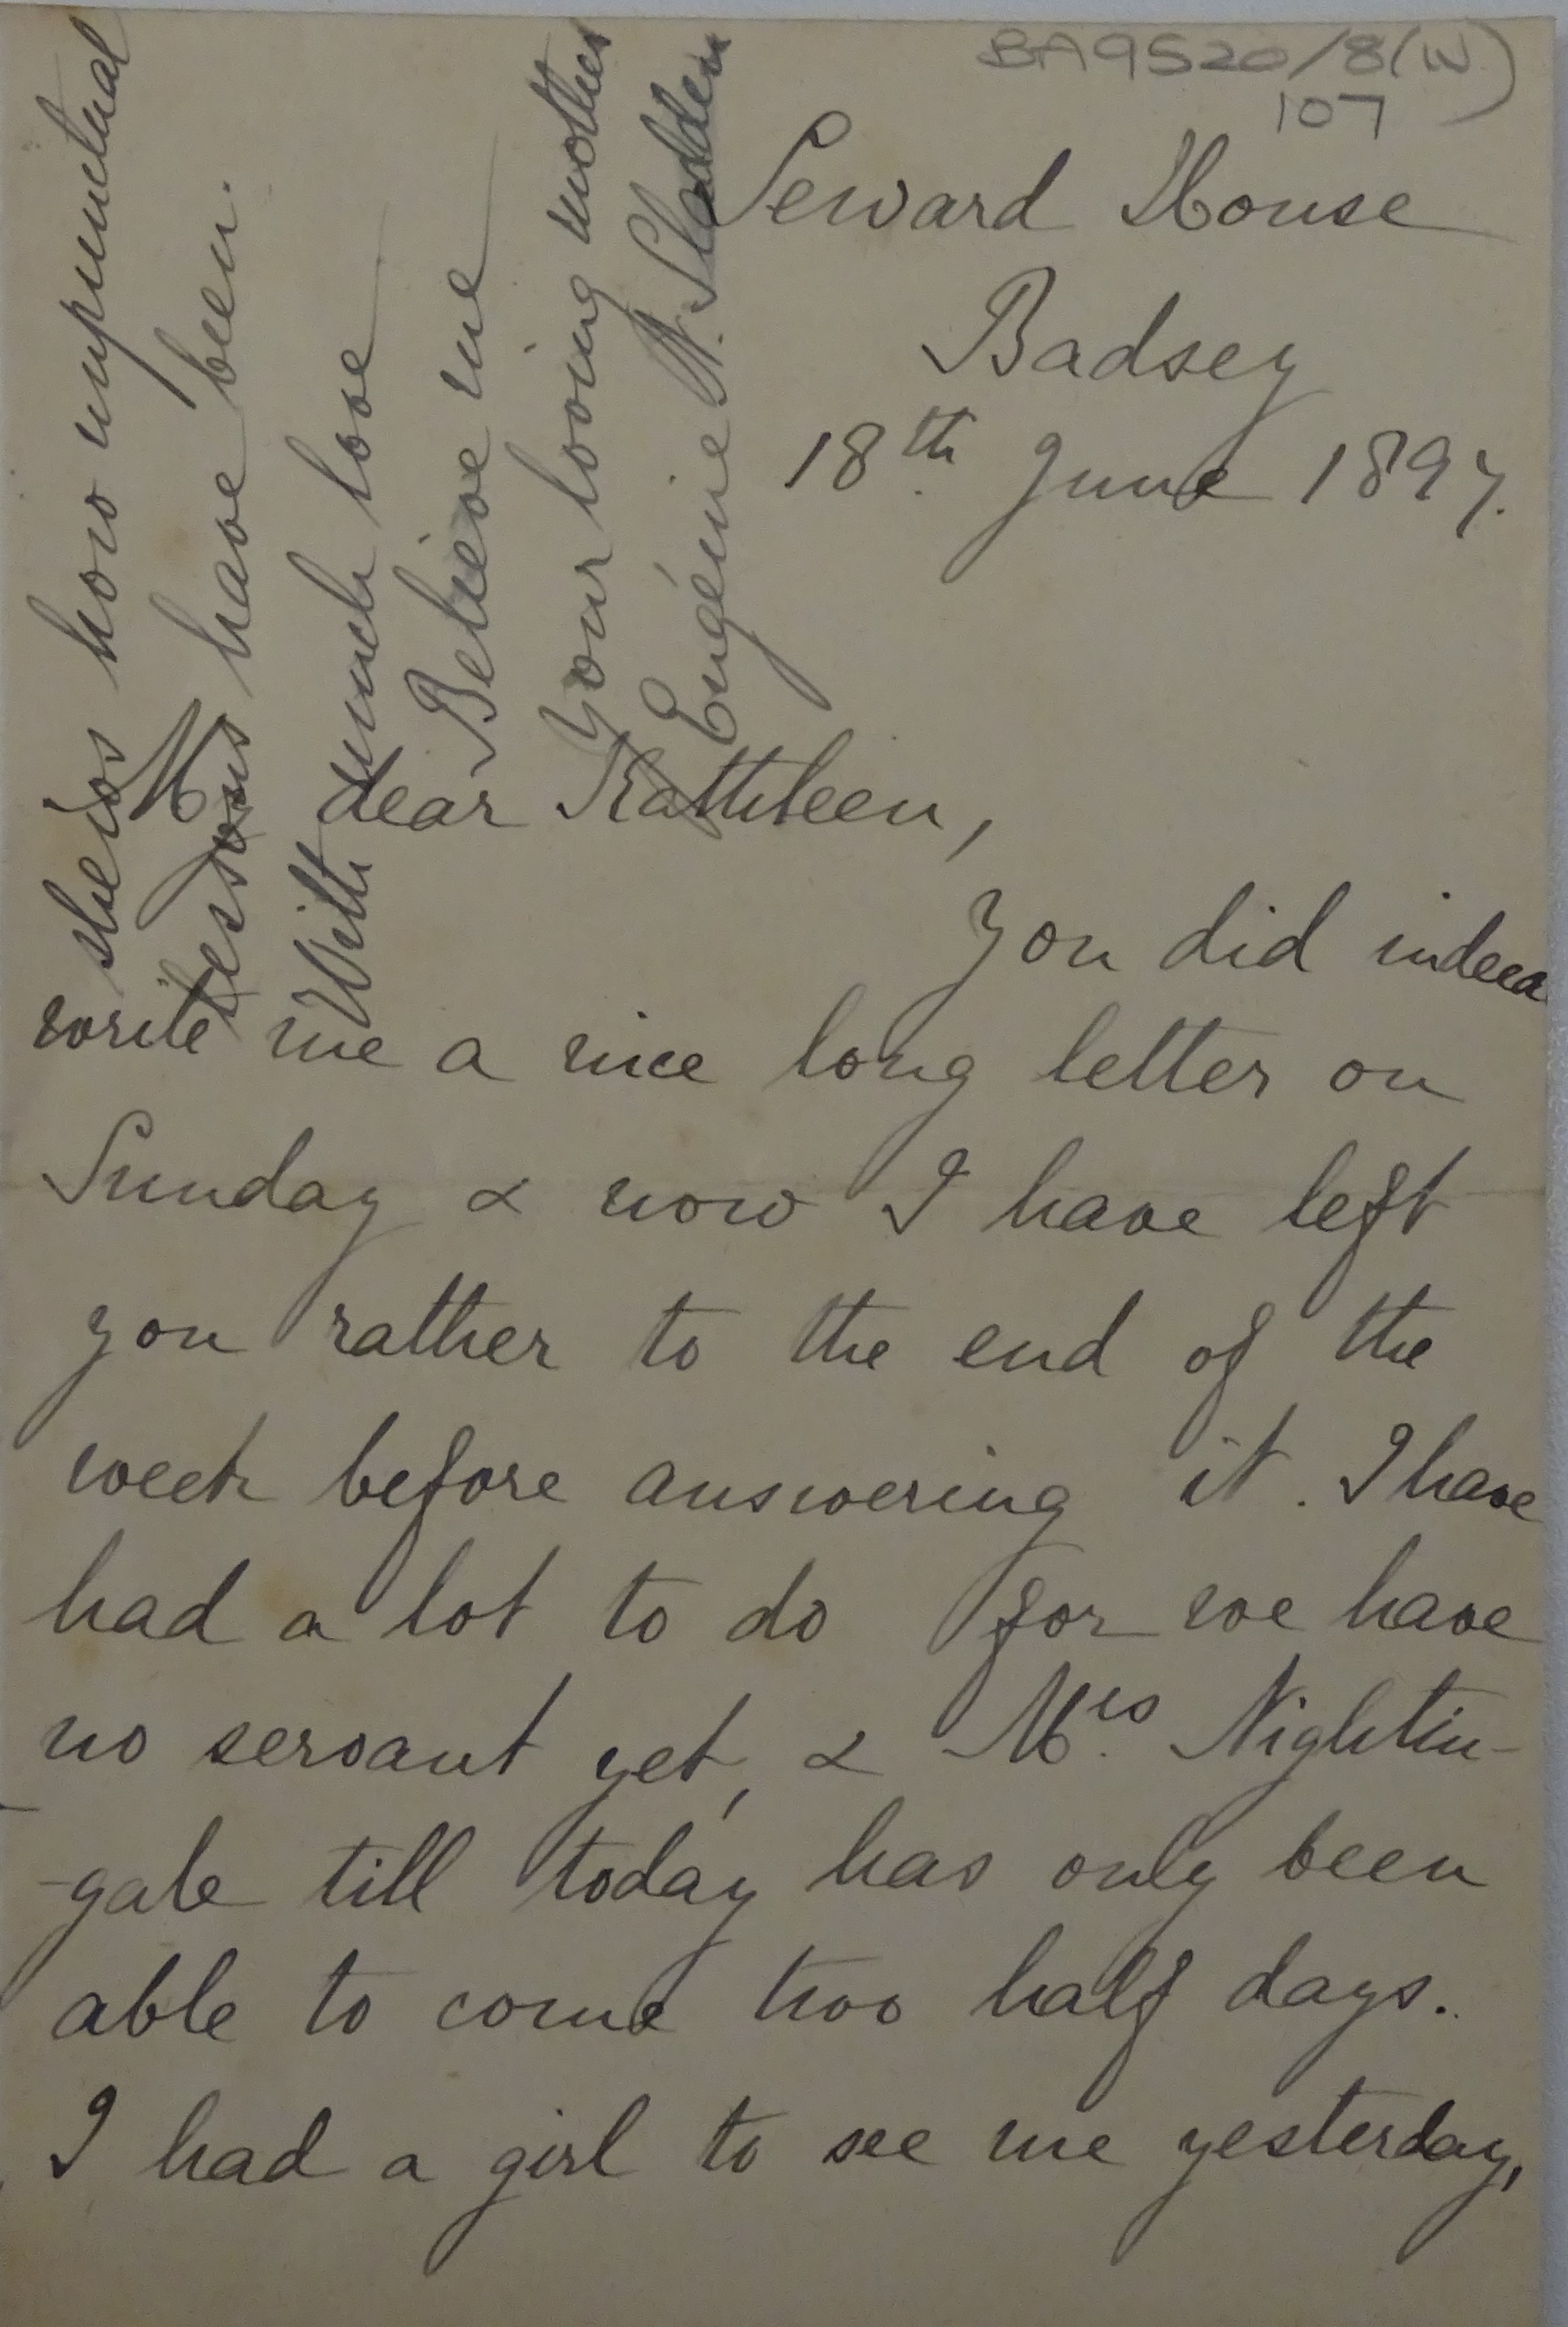 BA9520/8(IV)
107
Seward House
Badsey
18th June 1897.
My dear Kathleen,
You did indeed
write me a nice long letter on
Sunday & now I have left
you rather to the end of the
week before answering it. I have
had a lot to do for we have
no servant yet, & Mrs Nightin-
-gale till today has only been
able to come two half days.
I had a girl to see me yesterday,
how unpunctual
lessons have been.
With much love
Believe me
Your loving mother
Eugénie N. Sladden